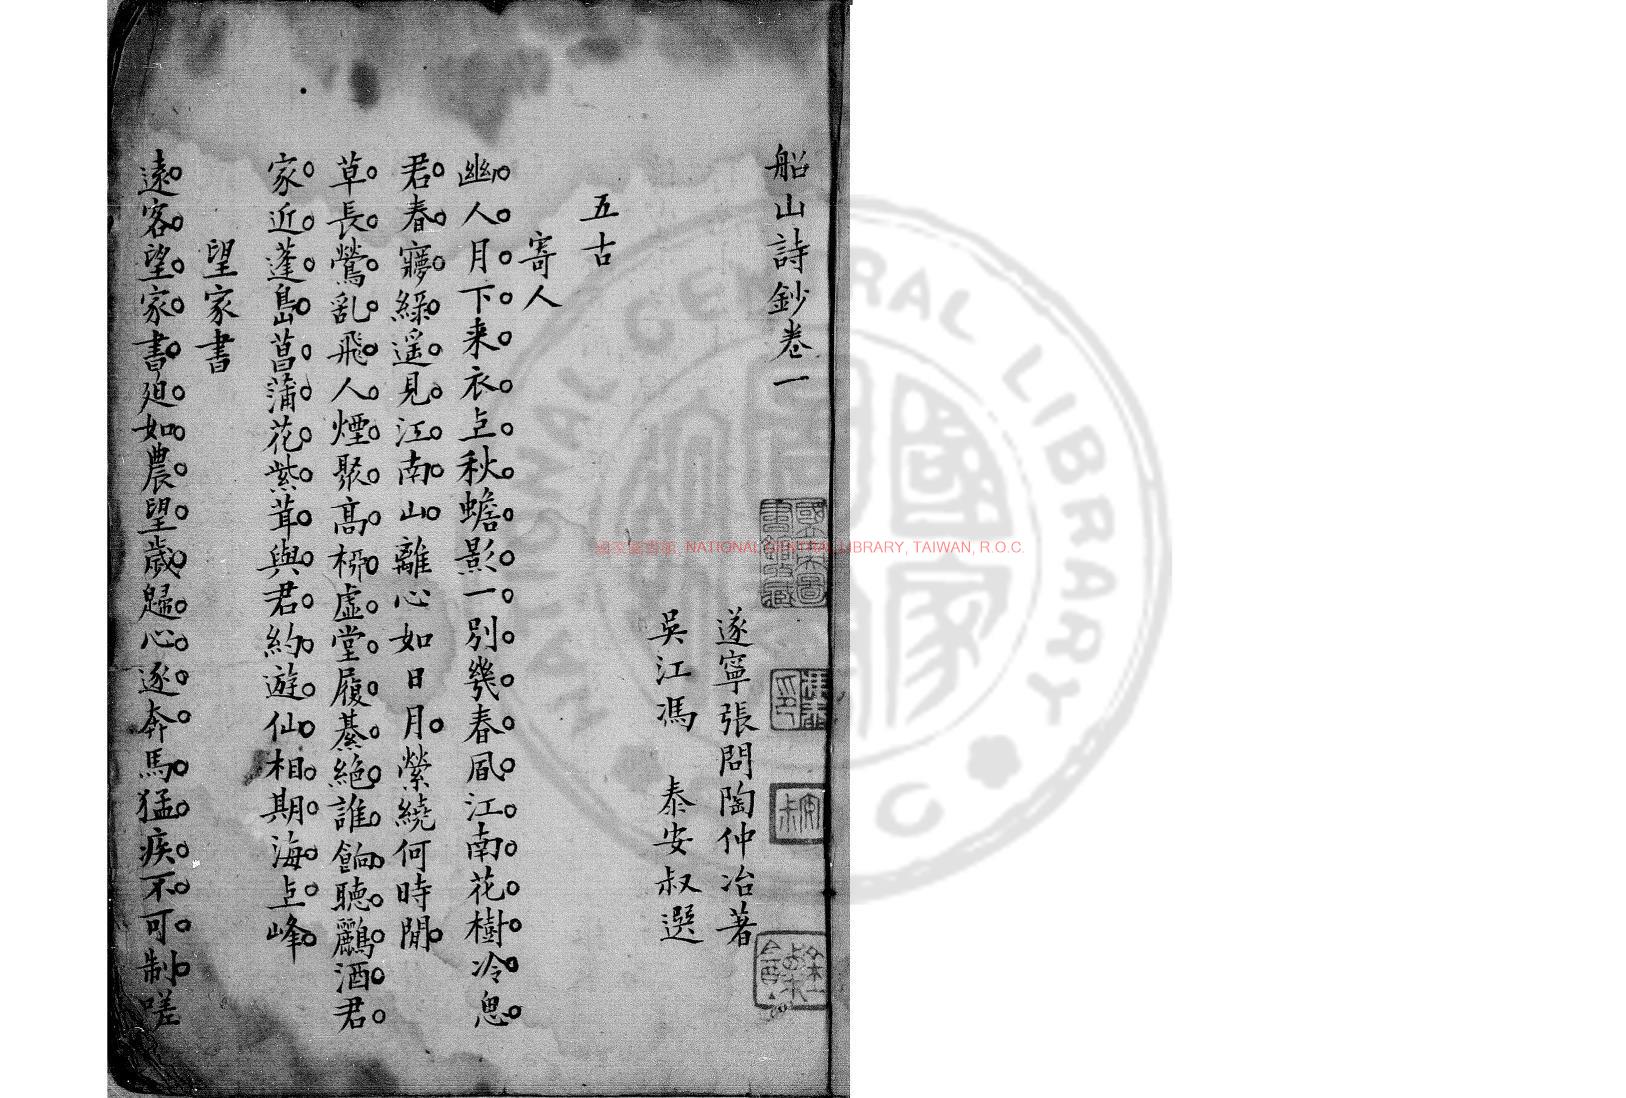 船山詩鈔卷一
遂寧張問陶仲冶著
吳江馮　泰安叔選
五古
寄人
幽人月下来衣上秋蟾影一別幾春風江南花樹冷思
君春寢綠遥見江南山離心如日月縈繞何時閒
草長鶯乱飛人煙聚高柳虛堂履綦絕誰餉聽鸝酒君
家近蓬島菖蒲花紫茸與君約遊仙相期海上峰
望家書
遠客望家書廹如農望歲歸心逐奔馬猛疾不可制嗟
國立中央圖書館收藏
國家圖書館, NATIONAL CENTRAL LIBRARY, TAIWAN, R.O.C.
NATIONAL CENTRAL LIBRARY